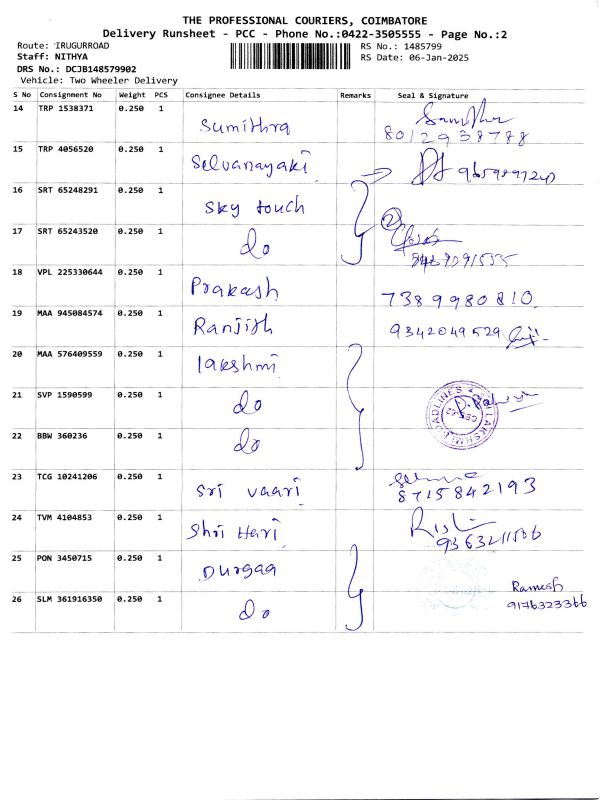 THE PROFESSIONAL COURIERS, COIMBATORE
Delivery Runsheet - PCC - Phone No.:0422-3505555 - Page No.:2
Route: IRUGURROAD
RS No.: 1485799
Staff: NITHYA
RS Date: 06-Jan-2025
DRS No.: DCJB148579902
Vehicle: Two Wheeler Delivery
S No Consignment No Weight PCS Consignee Details Remarks Seal & Signature
14 TRP 1538371 0.250 1 Sumithra
8012938788
15 TRP 4056520 0.250 1 Selvanayaki
16 SRT 65248291 0.250 1 Sky touch
17 SRT 65243520 0.250 1 do
2
18 VPL 225330644 0.250 1 Prakash 7389980810
19 MAA 945084574 0.250 1 Ranjith 9342049529
20 MAA 576409559 0.250 1 lakshmi
21 SVP 1590599 0.250 1 do
22 BBW 360236 0.250 1 do
23 TCG 10241206 0.250 1 Sri vaari 8715842193
24 TVM 4104853 0.250 1 Shri Hari
25 PON 3450715 0.250 1 Durgaa
Ramesh
9176323366
26 SLM 361916350 0.250 1 do